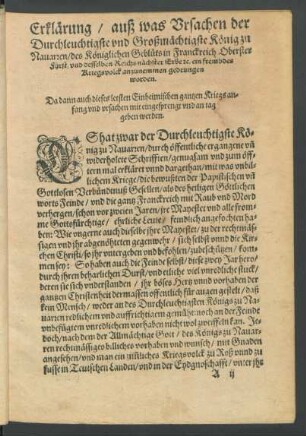 Erklärung / auß was Vrsachen der
Durchleuchtigste vnd Großmächtigste König zu
Nauarren / des Königlichen Geblüts in Franckreich Oberster
Fürst vnd desselben Reichs nächster Erbe ꝛc. ein frembdes
Kriegsvolck anzunemen gedrungen
worden.
Da dann auch dieses letsten Einheimischen gantzen Kriegs an-
fang vnd vrsachen mit eingesprengt vnd an tag
geben werden.
ES hat zwar der Durchleuchtigste Kö-
nig zu Nauarren / durch öffentliche ergangene vñ
widerholete Schrifften / genugsam vnd zum öff-
tern mal erkläret vnnd dargethan / mit was vnbil-
lichem Kriege / die bewußten der Papistischen vñ
Gottlosen Verbündtnuß Gesellen / als des heiligen Göttlichen
worts Feinde / vnd die gantz Franckreich mit Raub vnd Mord
verhergen / schon vor zweien Jaren / jre Mayestet vnd alle from-
me Gottsförchtige / ehrliche Leute / feindlich angefochten ha-
ben: Wie vngerne auch dieselbe jhre Mayestet / zu der rechtmäs-
sigen vnd jhr abgenötheten gegenwehr / sich selbst vnnd die Kir-
chen Christi / so jhr vntergeben vnd befohlen / zubeschützen / kom-
men sey: So haben auch die Feinde selbst / diese zwey Jar hero /
durch jhrem beharlichen Durst / vnd etliche viel vnredliche stuck /
deren sie sich vnderstanden / jhr böses Hertz vnnd vorhaben der
gantzen Christenheit dermassen offentlich für augen gestelt / daß
kein Mensch / weder an des Durchleuchtigsten Königs zu Na-
uarren redlichem vnd auffrichtigem gemüht: noch an der Feinde
vnbefügtem vnredlichem vorhaben nicht wol zweiffeln kan. Je-
doch / nach dem der Allmächtige Gott / des Königs zu Nauar-
ren rechtmässiges billiches vorhaben vnd wunsch / mit Gnaden
angesehen / vnd man ein zimliches Kriegsvolck zu Roß vnnd zu
fusse in Teutschen Landen / vnd in der Eydgnoschafft / vnter jhr
A ij